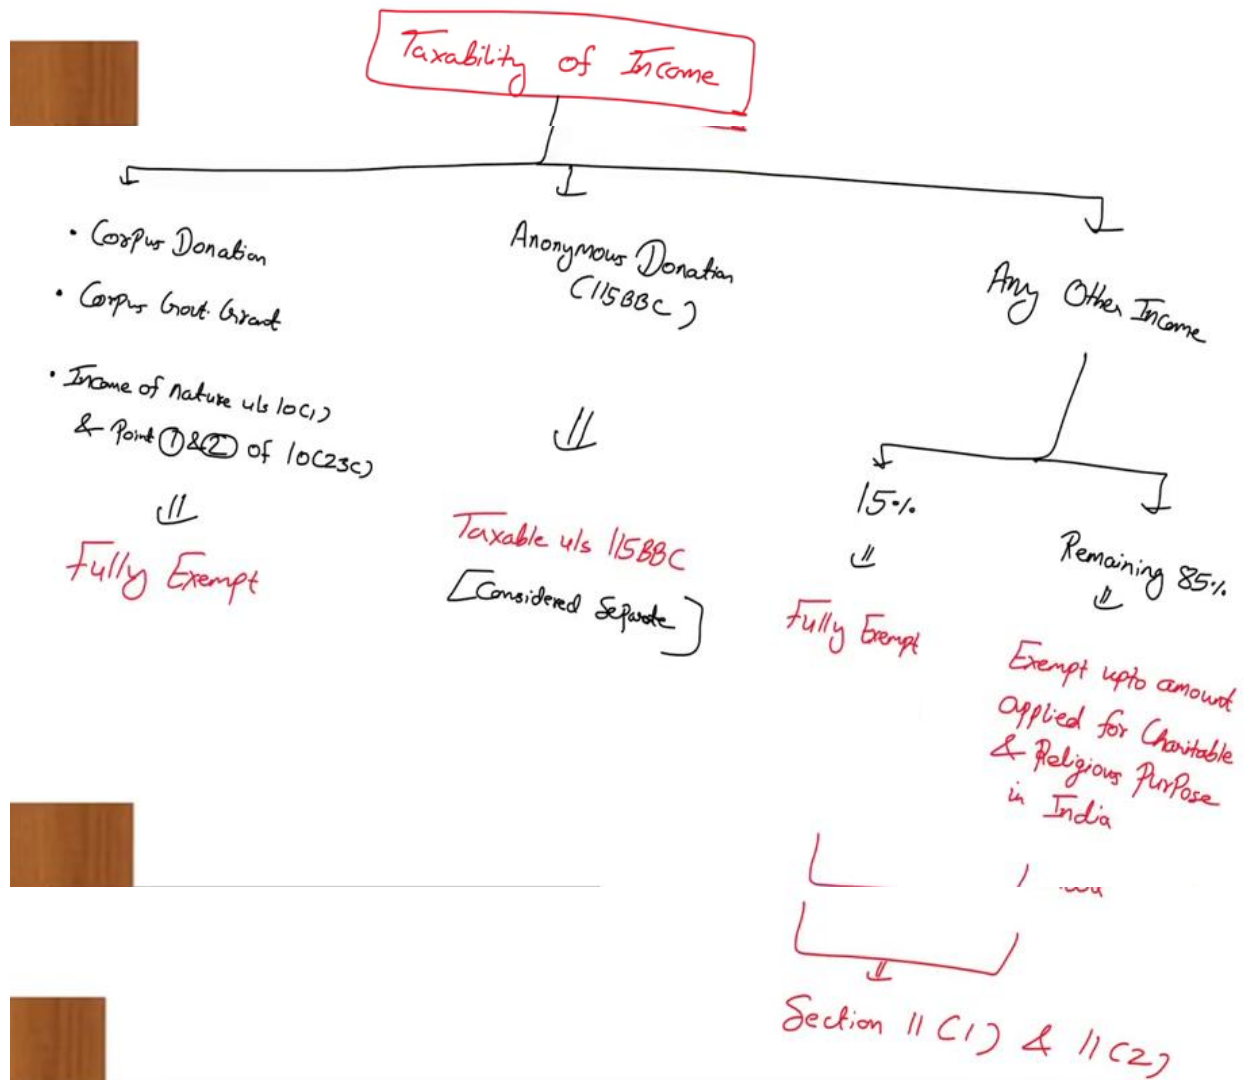 Taxability of Income
• Corpus Donation
• Corpus Govt. Grant
• Income of nature u/s 10(1)
& Point ① & ② of 10(23C)
Fully Exempt
Anonymous Donation
(115BBC)
Taxable u/s 115BBC
[Considered Separate]
Any Other Income
15%
Fully Exempt
Remaining 85%
Exempt upto amount
applied for Charitable
& Religious Purpose
in India
Section 11(1) & 11(2)